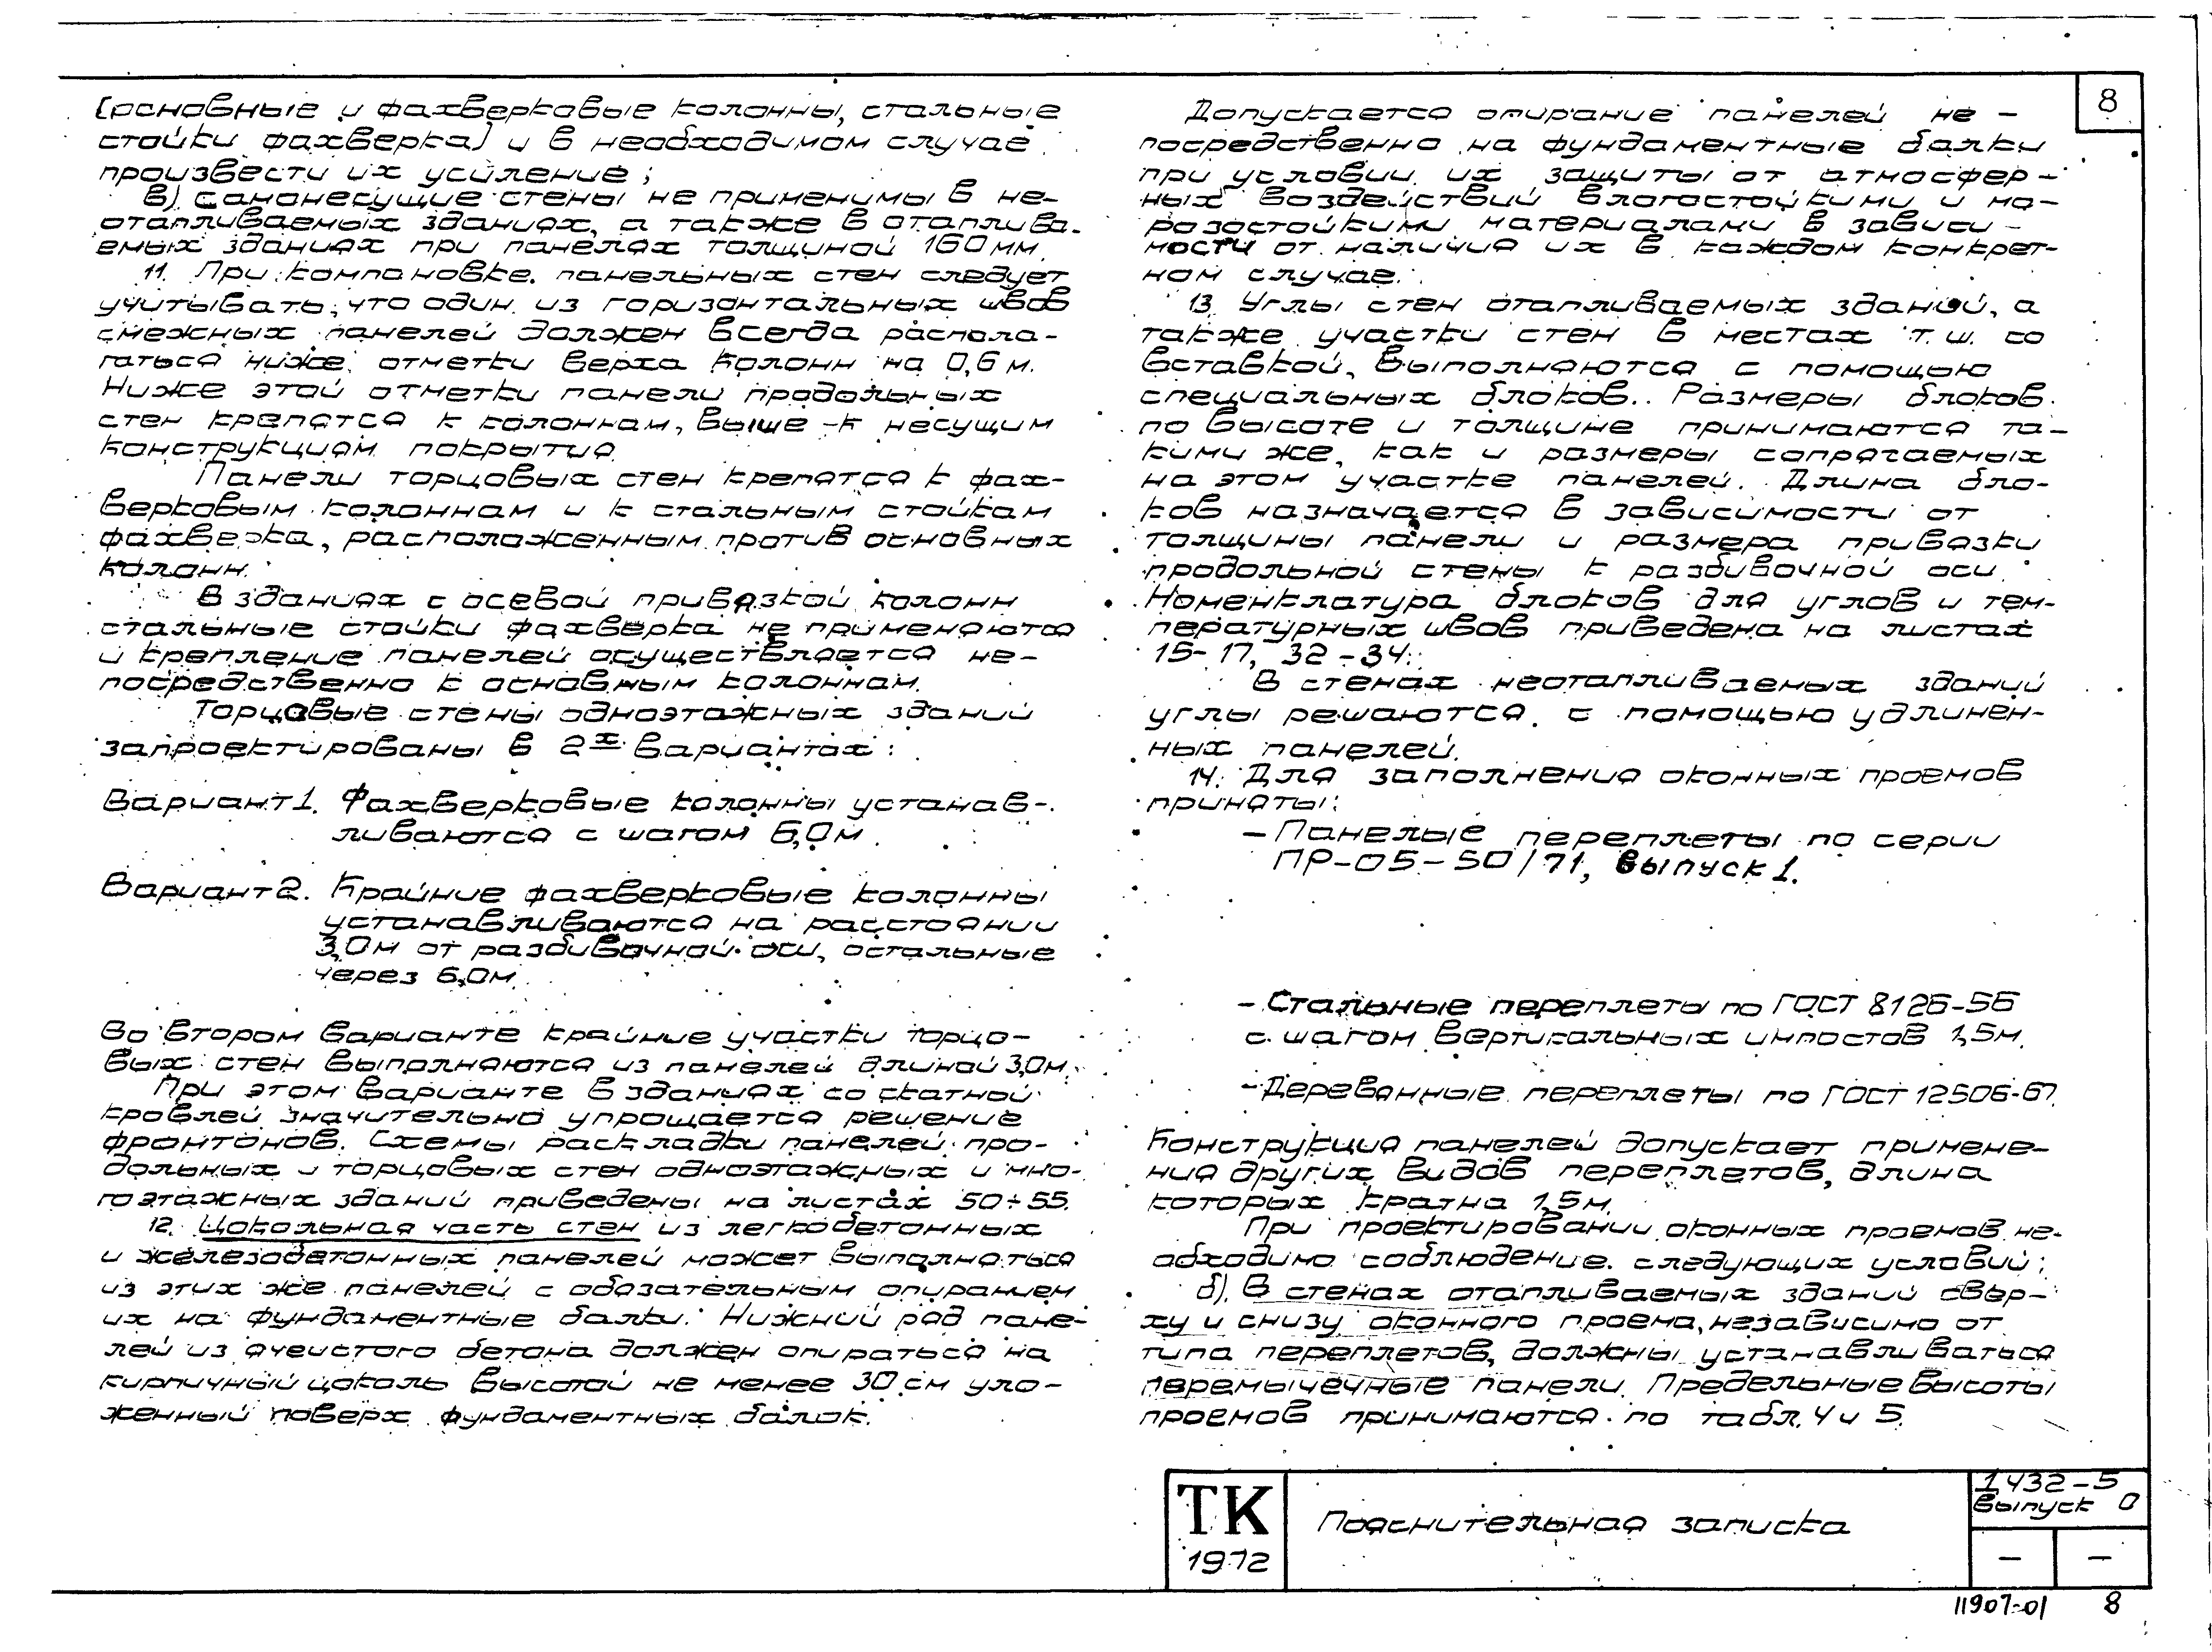 (основные и фахверковые колонны, стальные
стойки фахверка) и в необходимом случае
произвести их усиление;
в) самонесущие стены не применимы в не-
отапливаемых зданиях, а также в отаплива-
емых зданиях при панелях толщиной 160 мм.
11. При компановке панельных стен следует
учитывать, что один из горизонтальных швов
смежных панелей должен всегда распола-
гаться ниже отметки верха колонн на 0,6 м.
Ниже этой отметки панели продольных
стен крепятся к колоннам, выше - к несущим
конструкциям покрытия.
Панели торцовых стен крепятся к фах-
верковым колоннам и к стальным стойкам
фахверка, расположенным против основных
колонн.
В зданиях с осевой привязкой колонн
стальные стойки фахверка не применяются
и крепление панелей осуществляется не-
посредственно к основным колоннам.
Торцовые стены одноэтажных зданий
запроектированы в 2х вариантах:
Вариант 1. Фахверковые колонны устанав-
ливаются с шагом 6,0 м.
Вариант 2. Крайние фахверковые колонны
устанавливаются на расстоянии
3,0 м от разбивочной оси, остальные
через 6,0 м.
Во втором варианте крайние участки торцо-
вых стен выполняются из панелей длиной 3,0 м.
При этом варианте в зданиях со скатной
кровлей значительно упрощается решение
фронтонов. Схемы раскладки панелей про-
дольных и торцовых стен одноэтажных и мно-
гоэтажных зданий приведены на листах 50÷55.
12. Цокольная часть стен из легкобетонных
и железобетонных панелей может выполняться
из этих же панелей с обязательным опиранием
их на фундаментные балки. Нижний ряд пане-
лей из ячеистого бетона должен опираться на
кирпичный цоколь высотой не менее 30 см уло-
женный поверх фундаментных балок.
8
Допускается опирание панелей не-
посредственно на фундаментные балки
при условии их защиты от атмосфер-
ных воздействий влагостойкими и мо-
розостойкими материалами в зависи-
мости от наличия их в каждом конкрет-
ном случае.
13. Углы стен отапливаемых зданий, а
также участки стен в местах т.ш. со
вставкой, выполняются с помощью
специальных блоков. Размеры блоков
по высоте и толщине принимаются та-
кими же, как и размеры сопрягаемых
на этом участке панелей. Длина бло-
ков назначается в зависимости от
толщины панели и размера привязки
продольной стены к разбивочной оси.
Номенклатура блоков для углов и тем-
пературных швов приведена на листах
15-17, 32-34.
В стенах неотапливаемых зданий
углы решаются с помощью удлинен-
ных панелей.
14. Для заполнения оконных проемов
приняты:
- Панелые переплеты по серии
ПР-05-50/71, выпуск 1.
- Стальные переплеты по ГОСТ 8126-56
с шагом вертикальных импостов 1,5 м.
- Деревянные переплеты по ГОСТ 12506-67.
Конструкция панелей допускает примене-
ния других видов переплетов, длина
которых кратна 1,5 м.
При проектировании оконных проемов не-
обходимо соблюдение следующих условий:
б). В стенах отапливаемых зданий свер-
ху и снизу оконного проема, независимо от
типа переплетов, должны устанавливаться
перемычечные панели. Предельные высоты
проемов принимаются по табл. 4 и 5.
ТК
1972
Пояснительная записка
1432-5
Выпуск 0
– –
11907-01 8